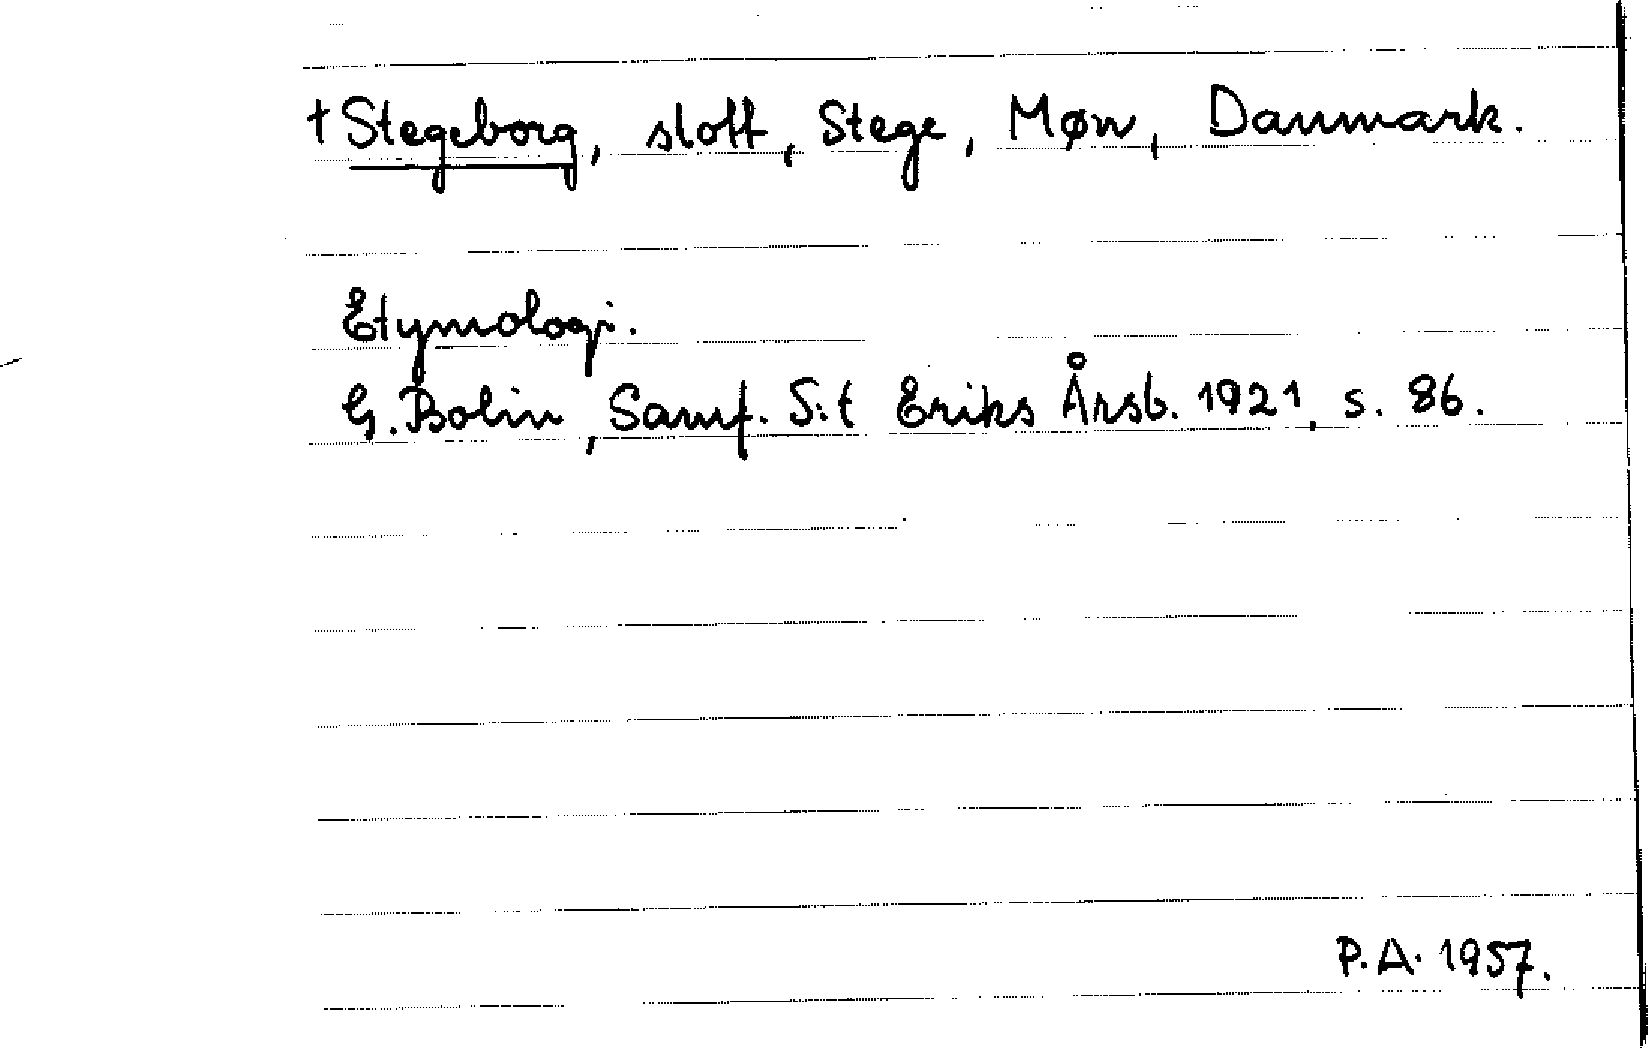 † Stegeborg, slott, Stege, Møn, Danmark.
Etymologi.
G. Bolin, Samf. S:t Eriks Årsb. 1921, s. 86.
P.A. 1957.